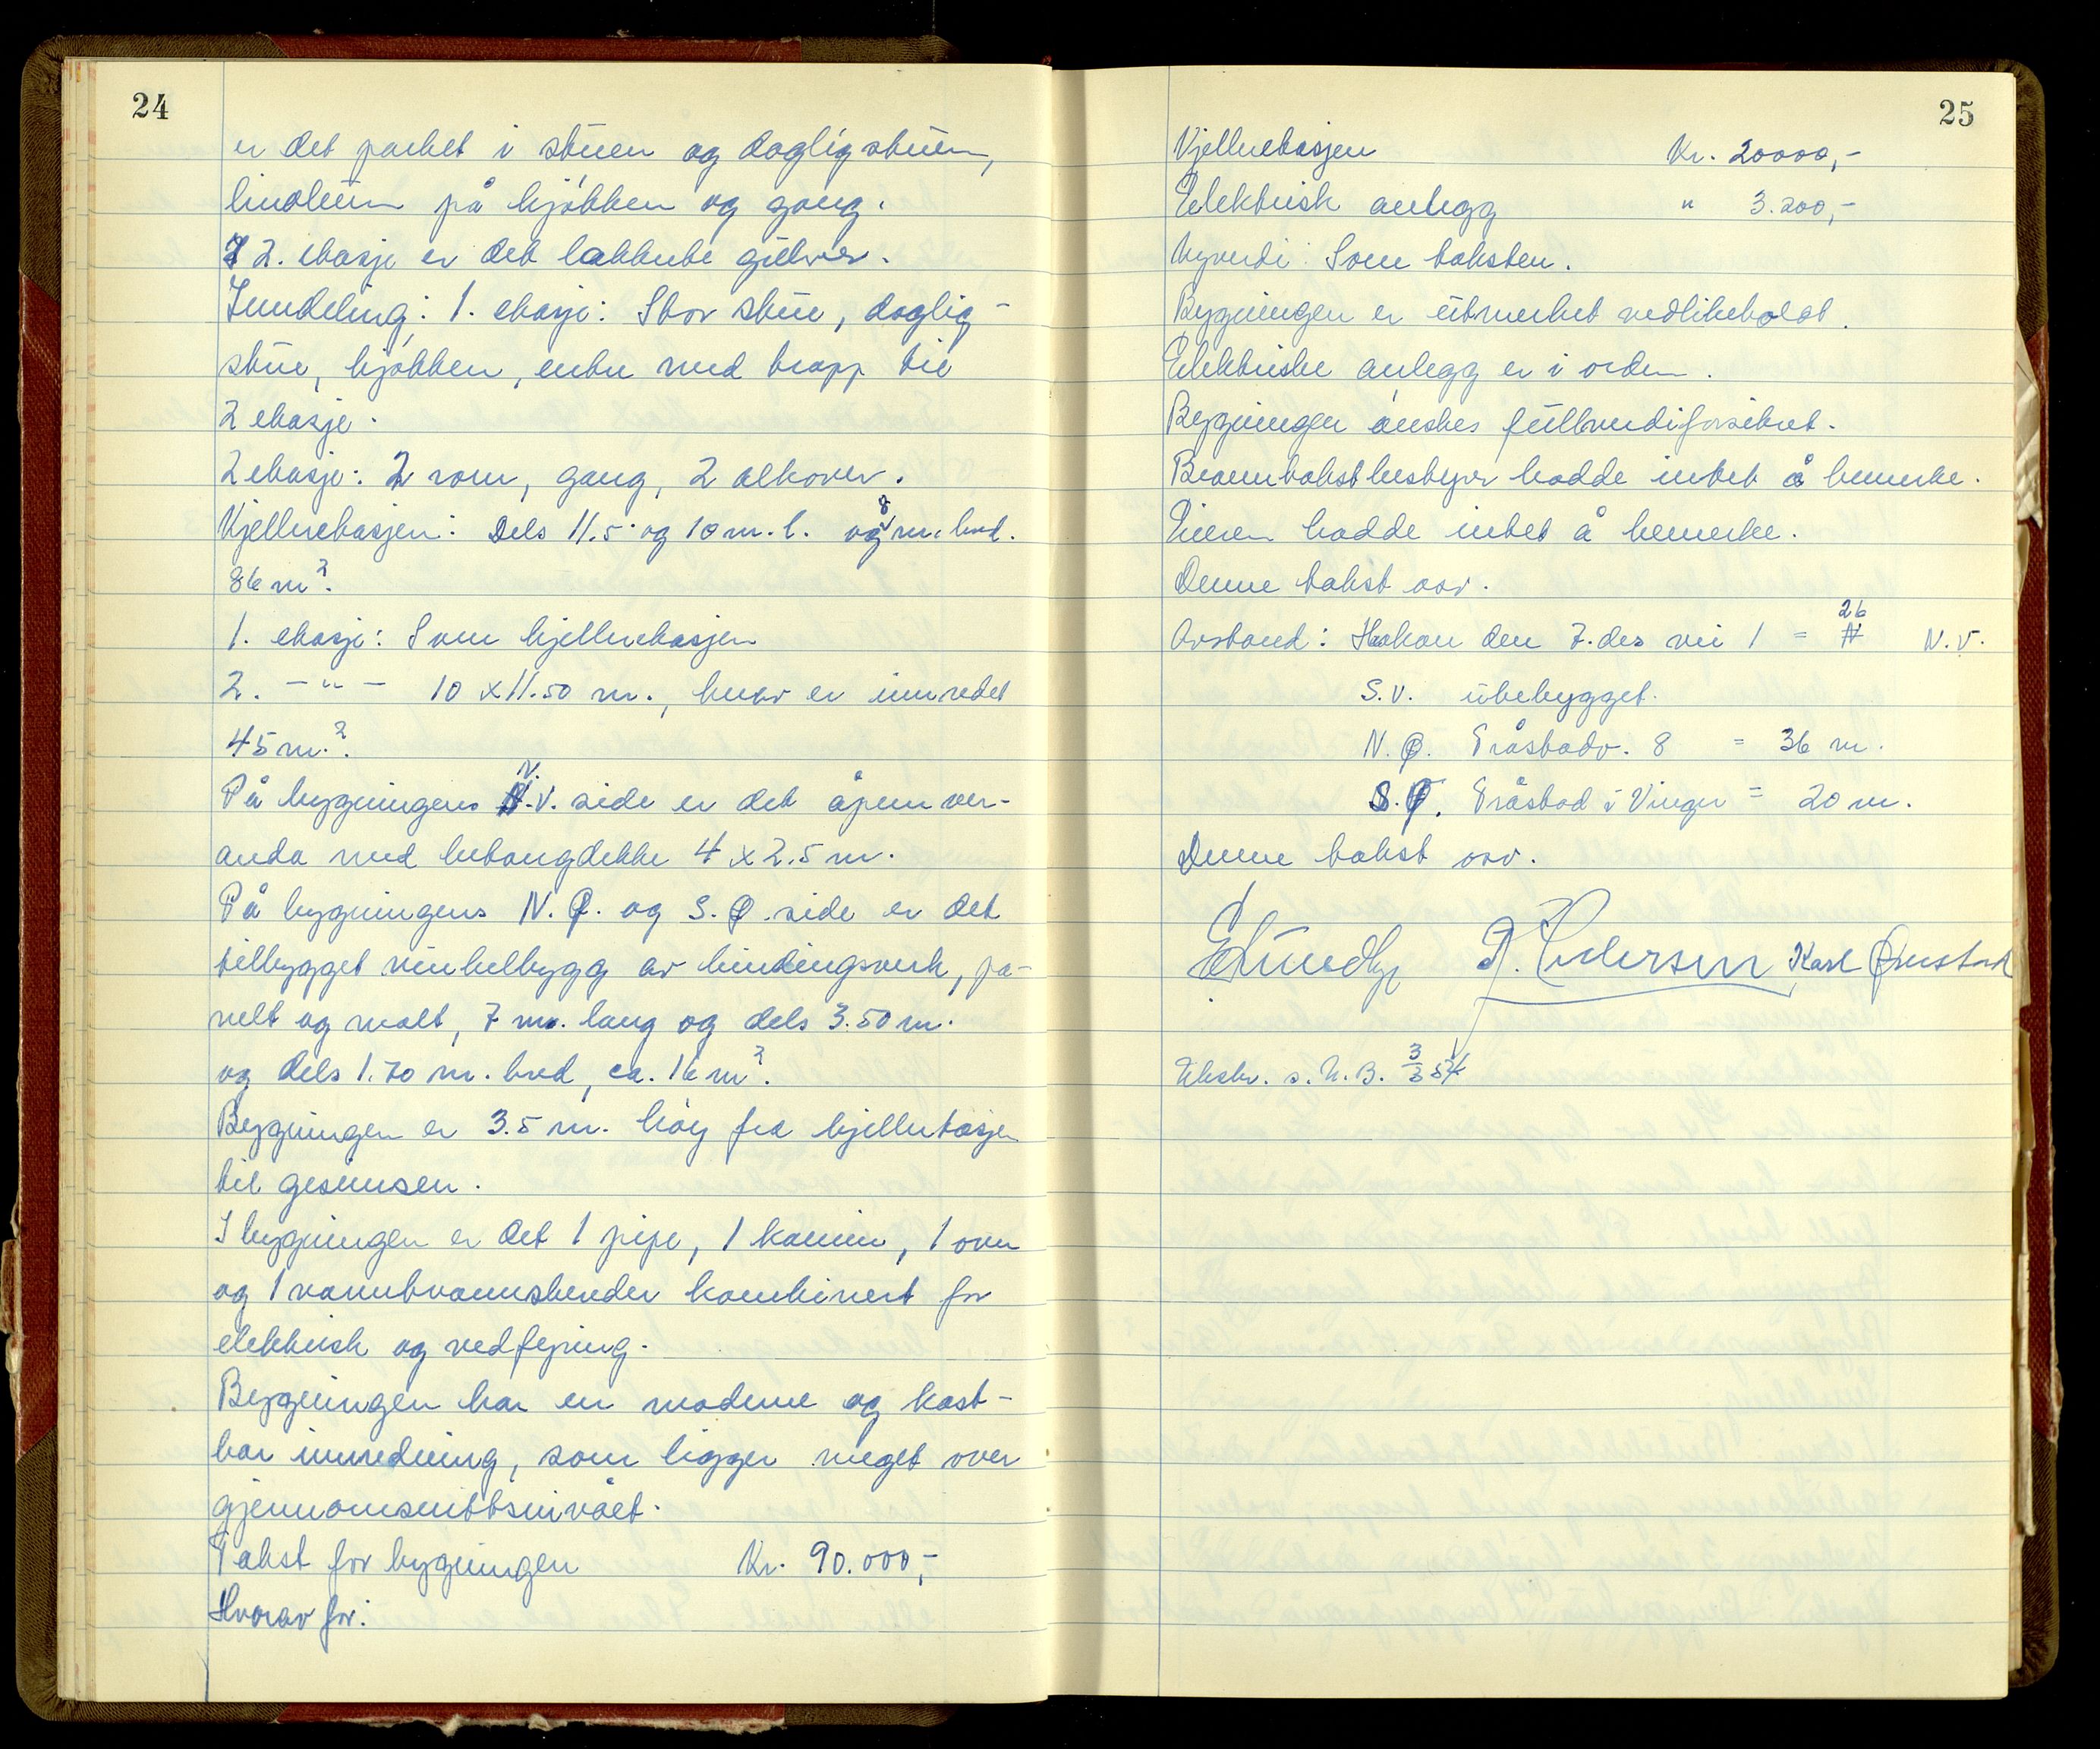 24
er det parket i stuen og dagligstuen,
linoleum på kjøkken og gang.
I 2. etasje er det lakkerte gulver.
Inndeling: 1. etasje: Stor stue, daglig-
stue, kjøkken, entre med trapp til
2 etasje.
2 etasje: 2 rom, gang, 2 alkover.
Kjelleretasjen: Dels 11.5 og 10 m. l. og 8 m. bred.
86 m².
1. etasje: Som kjelleretasjen
2. -"- 10 x 11.50 m., hvor er innredet
45 m.².
På bygningens N.V. side er det åpen ver-
anda med betongdekke 4 x 2.5 m.
På bygningens N.Ø. og S.Ø. side er det
tilbygget vinkelbygg av bindingsverk, pa-
nelt og malt, 7 m. lang og dels 3.50 m.
og dels 1.70 m. bred, ca. 16 m².
Bygningen er 3.5 m. høy fra kjelleretasjen
til gesimsen.
I bygningen er det 1 pipe, 1 kamin, 1 ovn
og 1 varmtvannsbereder kombinert for
elektrisk og vedfyring.
Bygningen har en moderne og kost-
bar innredning, som ligger meget over
gjennomsnittsnivået.
Takst for bygningen Kr. 90.000,-
Hvorav for:
25
Kjelleretasjen Kr. 20000,-
Elektrisk anlegg " 3.200,-
Nyverdi: Som taksten.
Bygningen er utmerket vedlikeholdt.
Elektriske anlegg er i orden.
Bygningen ønskes fullverdiforsikret.
Branntakstbestyrer hadde intet å bemerke.
Eieren hadde intet å bemerke.
Denne takst osv.
Avstand: Håkon den 7. des vei 1 = 26 N.V.
S.V. ubebygget.
N.Ø. Tråstadv. 8 = 36 m.
S.Ø. Tråstad i Vinger = 20 m.
Denne takst osv.
P. Pedersen Karl
Ekskr. s. N. B. 3/3 54